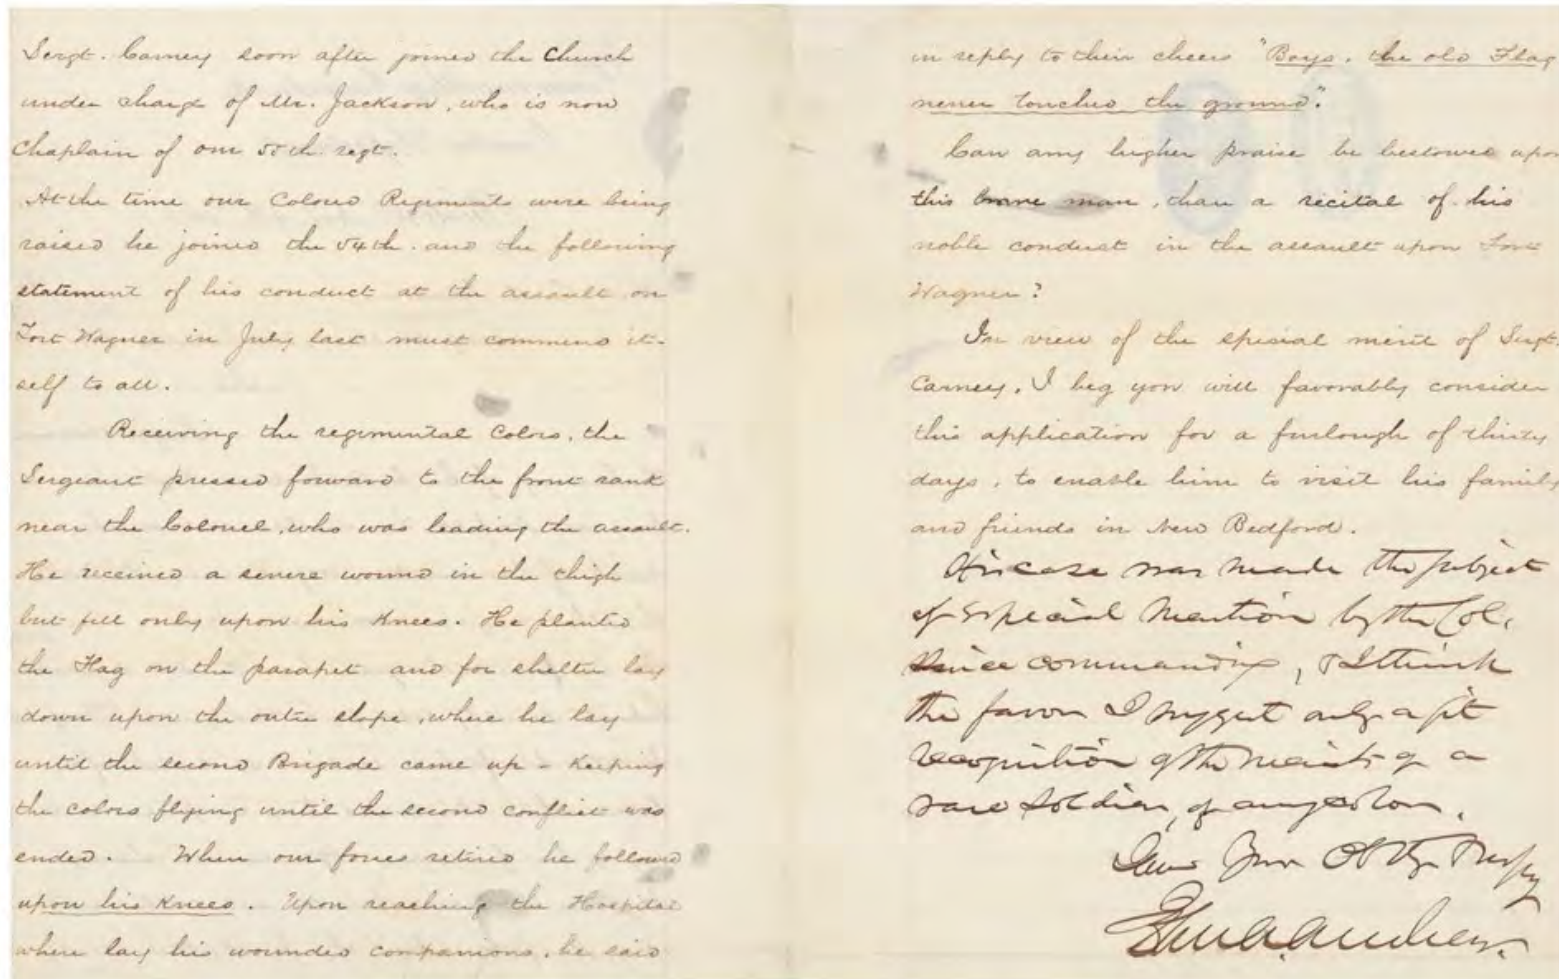 Sergt. Carney soon after joined the Church
under charge of Mr. Jackson, who is now
Chaplain of our 55th regt.
At the time our Colored Regiments were being
raised he joined the 54th. and the following
statement of his conduct at the assault on
Fort Wagner in July last must commend it-
self to all.
Receiving the regimental Colors, the
Sergeant pressed forward to the front rank
near the Colonel, who was leading the assault.
He received a severe wound in the thigh
but fell only upon his Knees. He planted
the Flag on the parapet and for shelter lay
down upon the outer slope, where he lay
until the second Brigade came up - Keeping
the colors flying until the second conflict was
ended. When our forces retired he followed
upon his Knees. Upon reaching the Hospital
where lay his wounded companions, he said
in reply to their cheers "Boys, the old Flag
never touched the ground".
Can any higher praise be bestowed upon
this brave man, than a recital of his
noble conduct in the assault upon Fort
Wagner?
In view of the special merit of Sergt.
Carney, I beg you will favorably consider
this application for a furlough of thirty
days, to enable him to visit his family
and friends in New Bedford.
His case was made the subject
of special mention by the Col.
since commanding, & I think
the favor I suggest only a fit
recognition of the merits of a
rare soldier, of any color.
Your Obt
John A. Andrew.